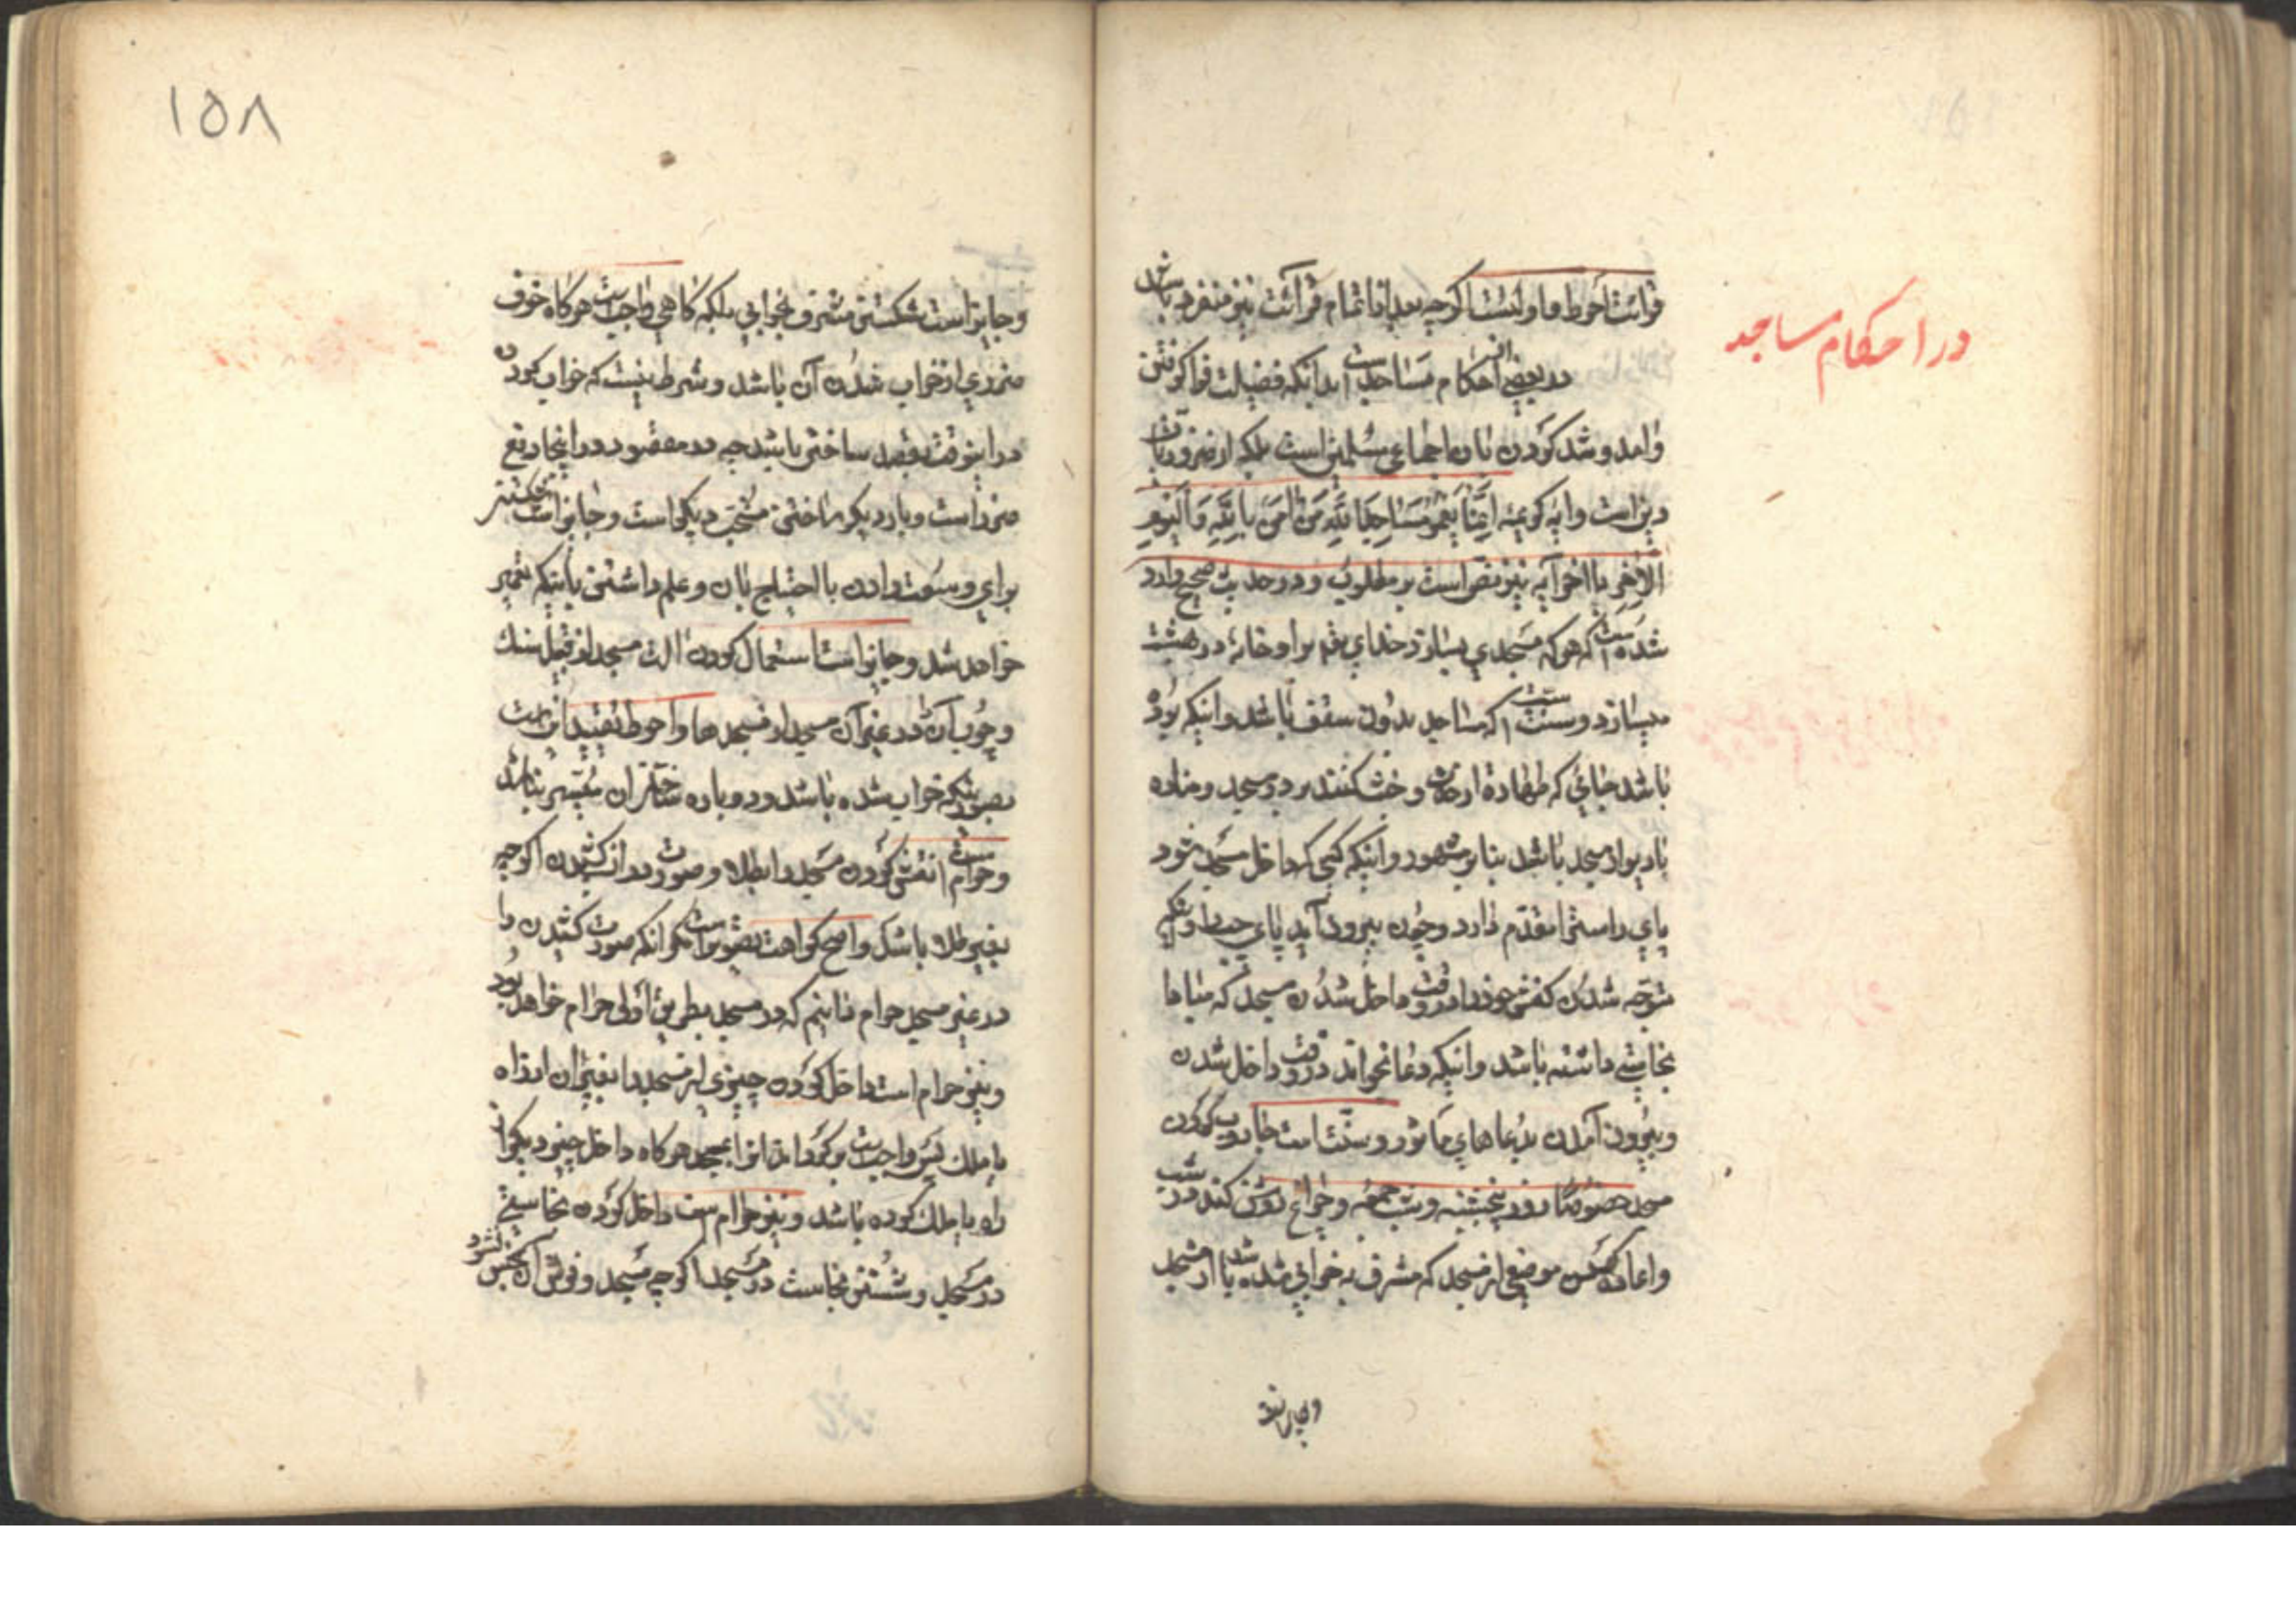 در احکام مساجد
قرائت احوط و اولیست اگرچه بعد از اتمام قرائت نیز منفرد باشد
در بعضی احکام مساجد است بدانکه فضیلت فرا گرفتن
و آمد و شد کردن بان اجماعی مسلمین است بلکه از ضروریات
دین است و ایه کریمه اِنَّما یَعْمُرُ مَساجِدَ اللّهِ مَن آمَنَ بِاللّهِ وَ الْیَوْمِ
الآخِرِ تا اخر آیه نیز نص است بر مطلوب و در حدیث صحیح وارد
شده است که هر که مسجدی بسازد خدای تعـ برا او خانهٔ در بهشت
میسازد و سنت است که مساجد بدون سقف باشد و اینکه بوده
باشد جائی که طهارة ارخا و خشک کنند بر در مسجد و مناره
با دیوار مسجد باشد بنا بر مشهور و اینکه کسی که داخل مسجد شود
پای راست را مقدّم دارد و چون بیرون آید پای چپ را و اینکه
متوجه شدن کفش خود را در وقت داخل شدن مسجد که مبادا
نجاستی داشته باشد و اینکه دعا بخواند در وقت داخل شدن
و بیرون آمدن بدعاهای مأثور و سنت است جاروب کردن
مسجد خصوصا روز پنجشنبه و شب جمعه و چراغ روشن کنند در شب
و اعاده کردن موضعی از مسجد که مشرف به خرابی شده باشد از مسجد
و جایز است
۱۵۸
و جایز است شکستن مشرف بخرابی بلکه گاهی واجب است هرگاه خوف
ضرری از خراب شدن آن باشد و شرط نیست که خراب کردن
در اینوقت بقصد ساختن باشد چه در مقصود در اینجا دفع
ضرر است و بار دیگر ساختن مستحب دیگر است و جایز است شکستن
برای وسعت دادن با احتیاج بان و علم داشتن باینکه تعمیر
خواهد شد و جایز است استعمال کردن الت مسجد از قبیل سنک
و چوب آن در غیر آن مسجد از مسجدها و احوط تقیید انست
بصورتیکه خراب شده باشد و دوباره ساختن ان میسر نباشد
و حرام است نقش کردن مسجد را بطلا و صورت در ان کشیدن اگرچه
بغیر طلا باشد و اصح کراهت تصویر است مکر انکه صورت کشیدن را
در غیر مسجد حرام دانیم که در مسجد بطریق اولی حرام خواهد بود
و نیز حرام است داخل کردن چیزی از مسجد را بغیر ان از راه
یا ملک پس واجب است بر گرداندن انرا بمسجد هرگاه داخل چیز دیگر از
راه یا ملک کرده باشد و نیز حرام است داخل کردن نجاستی
در مسجد و شستن نجاست در مسجد اگرچه مسجد و فرش آن نجس نشود